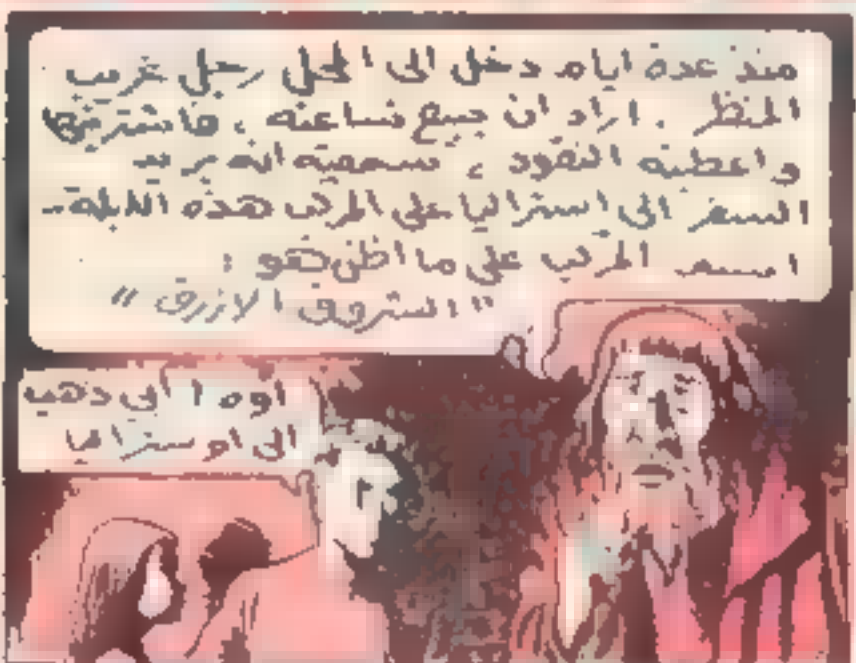 منذ عدة ايام دخل الى المحل رجل غريب
المنظر . اراد ان يبيع ساعته ، فاشتريتها
واعطيته النقود ، سمعته انه يريد
السفر الى استراليا على المركب هذه الليلة..
اسم المركب على ما اظن هو :
" الشروق الازرق "
اوه ! ابي ذهب
الى اوستراليا